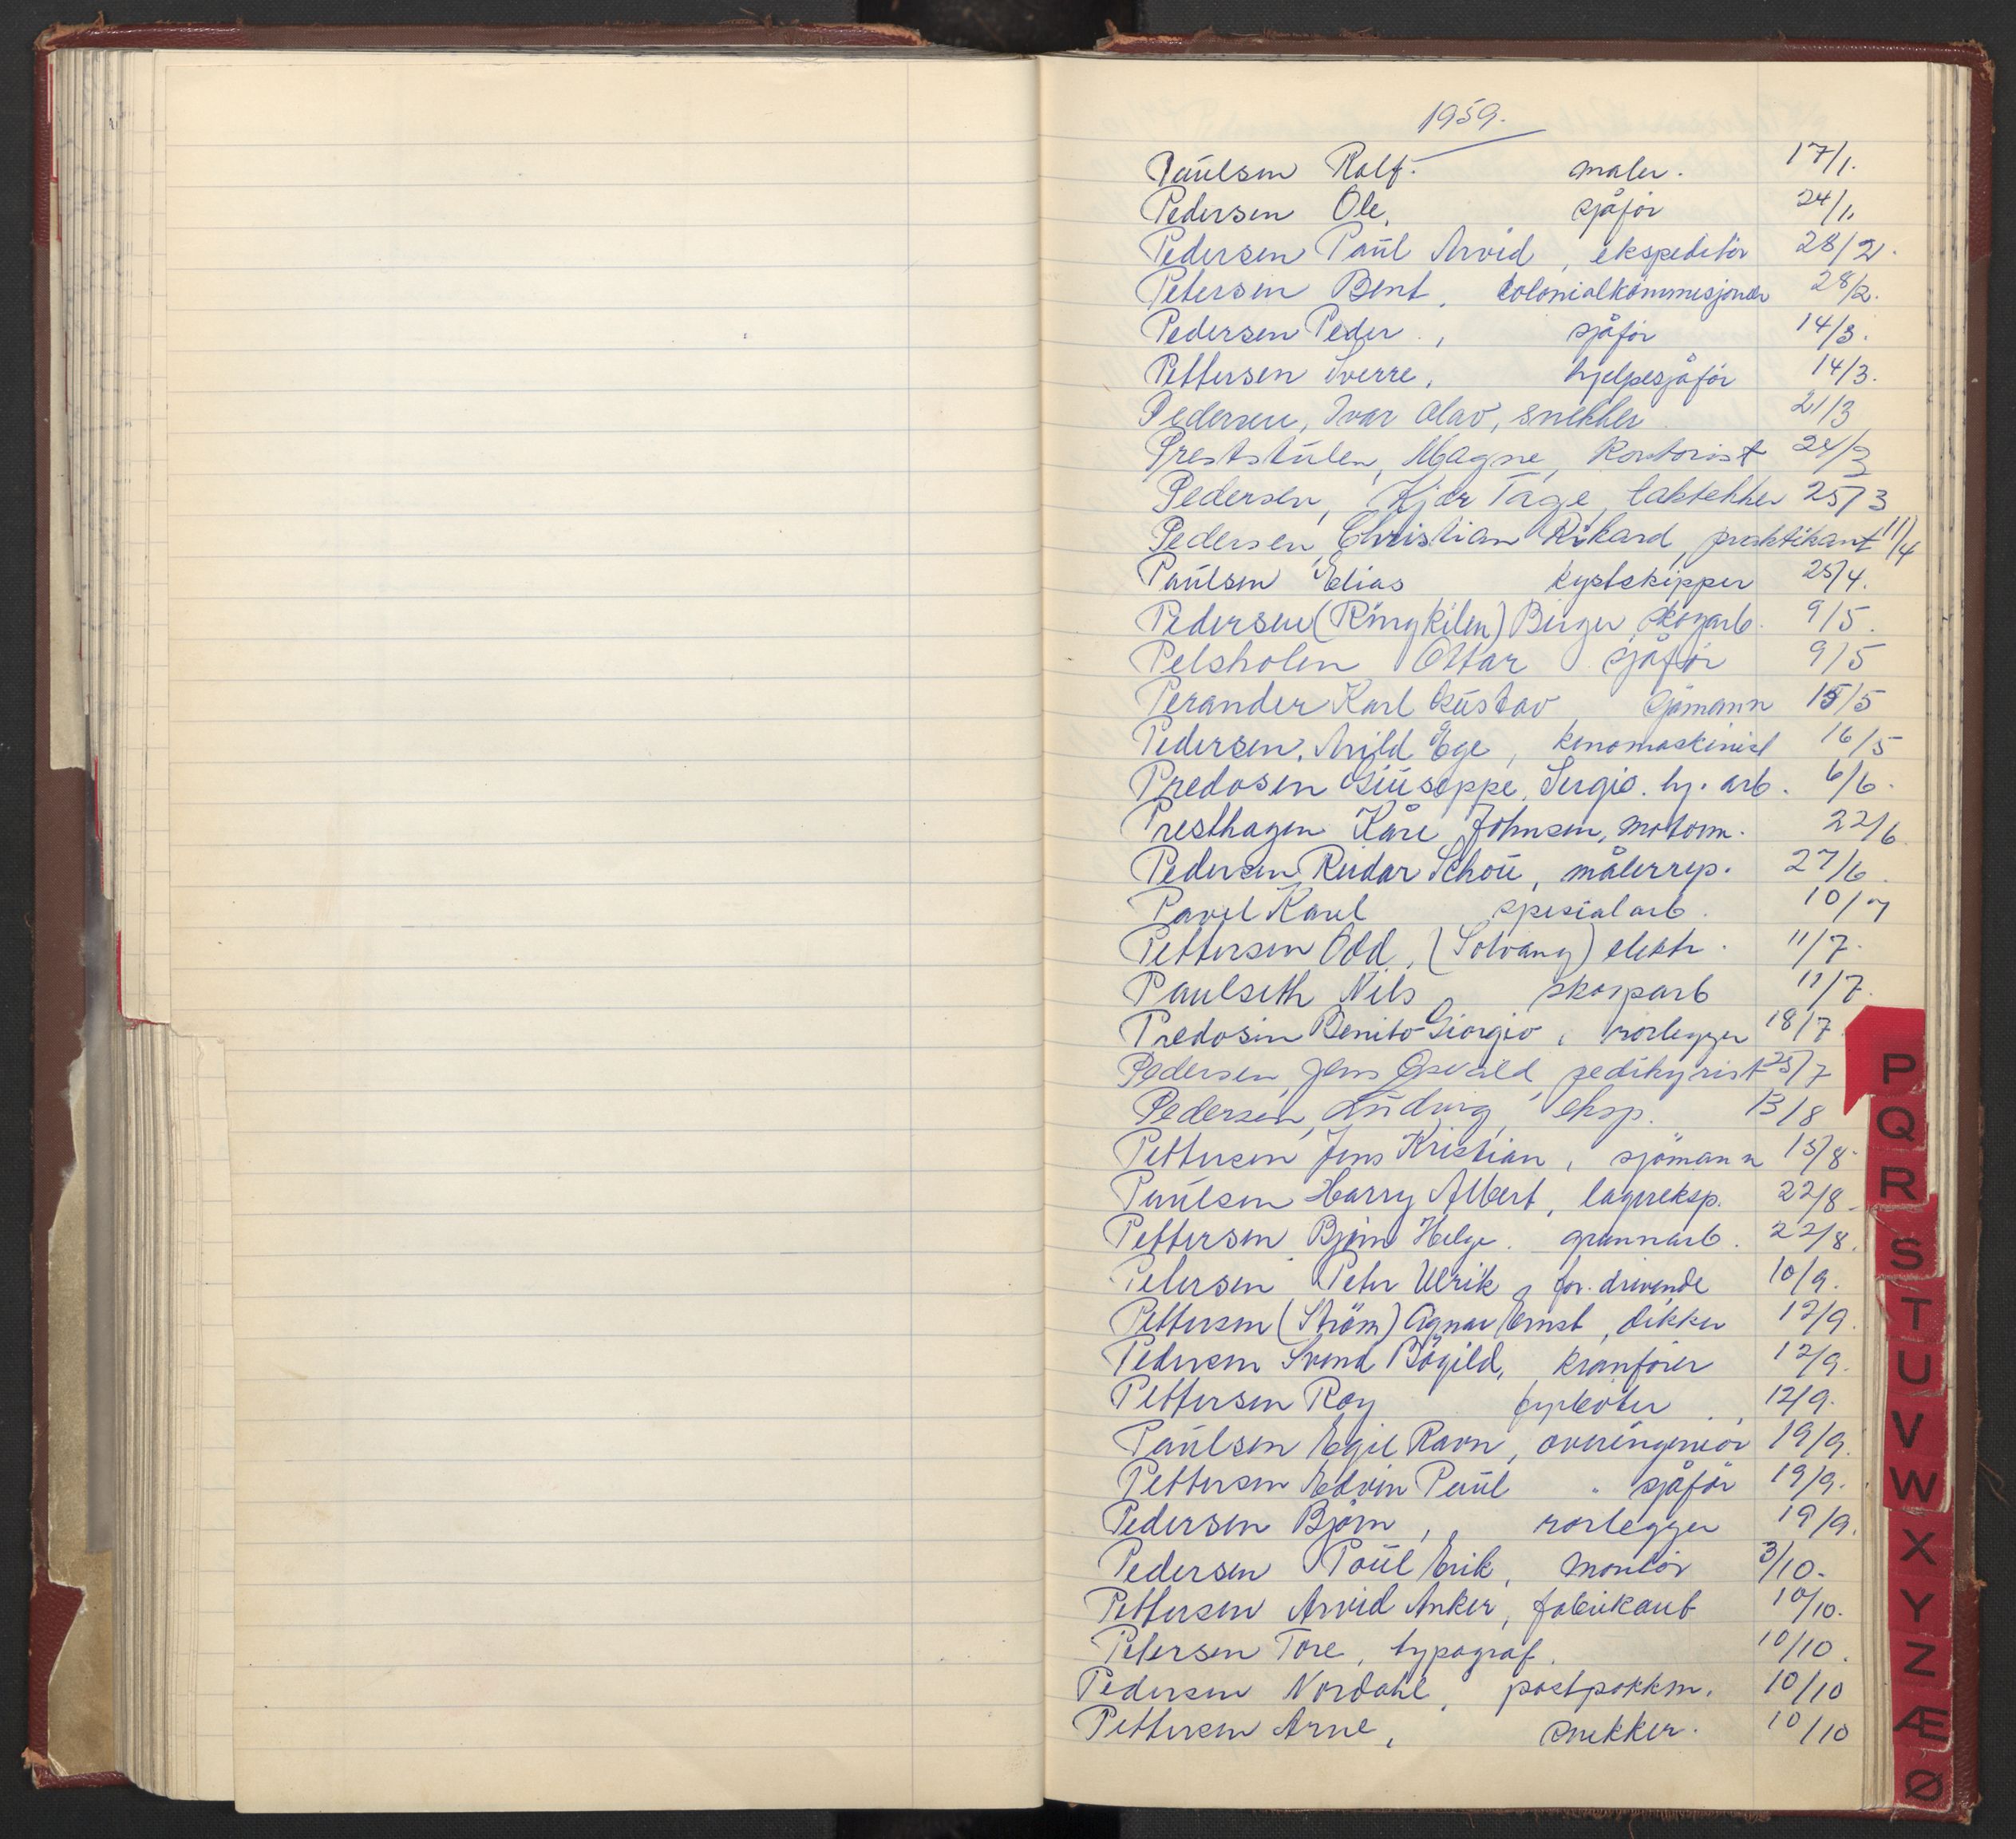 1959.
Paulsen Rolf. maler. 17/1.
Pedersen Ole, sjåför 24/1.
Pedersen Paul Arvid, ekspeditör 28/2.
Petersen Bent, Colonialkommisjonær 28/2.
Pedersen Peder, sjåför 14/3.
Pettersen Sverre, hjelpesjåför 14/3.
Pedersen, Ivar Olav, snekker 21/3
Preststulen, Magne, kontorist 24/3
Pedersen, Kjær Tage, taktekker 25/3
Pedersen, Christian Rikard, praktikant 11/4
Paulsen Elias kystskipper 25/4.
Pedersen (Ringkilen) Birger, skogarb. 9/5.
Pelsholen Ottar sjåför 9/5
Perander Karl Gustav, sjömann 15/5
Pedersen, Arild Ege, kinomaskinist 16/5
Predosen Giuseppe, Sergio. hj. arb. 6/6.
Presthagen Kåre Johnsen, motorm. 22/6.
Pedersen Reidar Schou, målerrep. 27/6.
Pavel Karel spesialarb. 10/7
Pettersen Odd, (Solvang) elektr. 11/7.
Paulseth Nils, skogarb 11/7.
Predosin Benito Giorgio, rörlegger 18/7.
Pedersen, Jens Osvald, pedikyrist 25/7
Pedersen, Ludvig, eksp. 13/8
Pettersen Jens Kristian, sjömann 15/8.
Paulsen Harry Albert, lagereksp. 22/8.
Pettersen Björn Helge. grunnarb. 22/8.
Petersen Peter Ulrik, for. drivende 10/9.
Pettersen (Ström) Agnar Ernst, dikker 12/9.
Pedersen Svend Bögild, kranförer 12/9.
Pettersen Roy fyrböter 12/9.
Paulsen Egil Ravn, overingeniör 19/9.
Pettersen Edvin Paul sjåför 19/9.
Pedersen Björn, rörlegger 19/9.
Pedersen Poul Erik, montör 3/10.
Pettersen Arvid Anker, fabrikarb 10/10.
Petersen Tore, typograf. 10/10.
Pedersen Nordahl, postpakkm. 10/10
Pettersen Arne, snekker. 10/10
P
Q
R
S
T
U
V
W
X
Y
Z
Æ
Ø